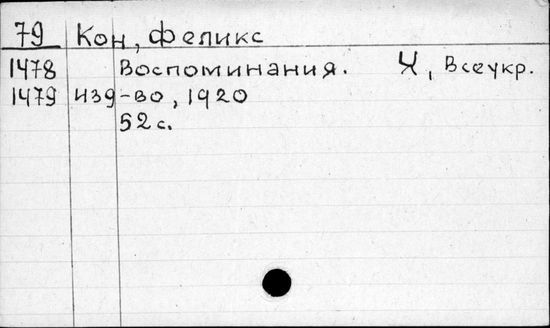 79 Кон, Феликс
1478 Воспоминания. Х, Всеукр.
1479 изд-во, 1920
52 с.